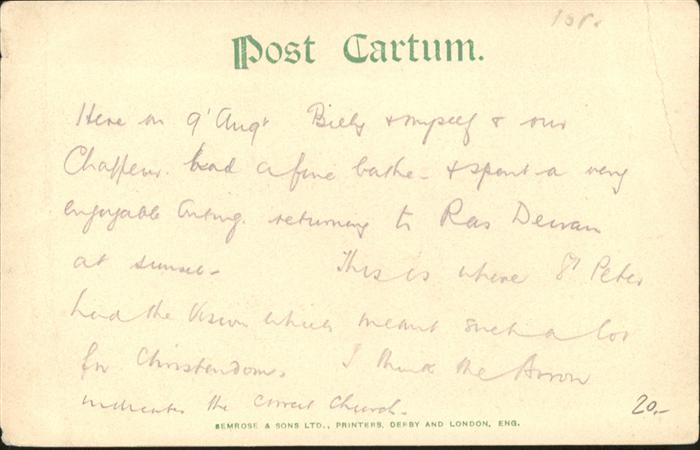 158.
Post Cartum.
Here on 9' Augt Billy & myself & our
Chaffeur. had a fine bathe - & spent a very
enjoyable outing. returning to Ras Deiran
at sunset - This is where St Peter
had the Vision which meant such a lot
for Christendom. I think the Arrow
indicates the correct church.
20.-
BEMROSE & SONS LTD., PRINTERS, DERBY AND LONDON, ENG.